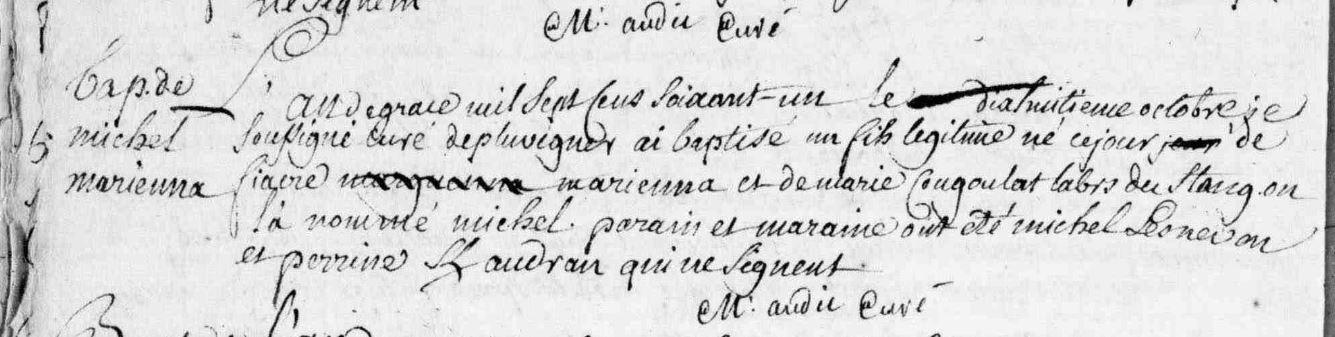 ne signent
M. audic Curé
Bap. de
michel
marienna
L'An de grace mil sept cens soixant-un le dixhuitieme octobre je
soussigné curé de pluvigner ai baptisé un fils legitime né ce jour de
fiacre marienna et de marie Cougoulat labrs du Stang. on
l'a nommé michel. parain et maraine ont été michel
et perrine audran qui ne signent.
M. audic Curé